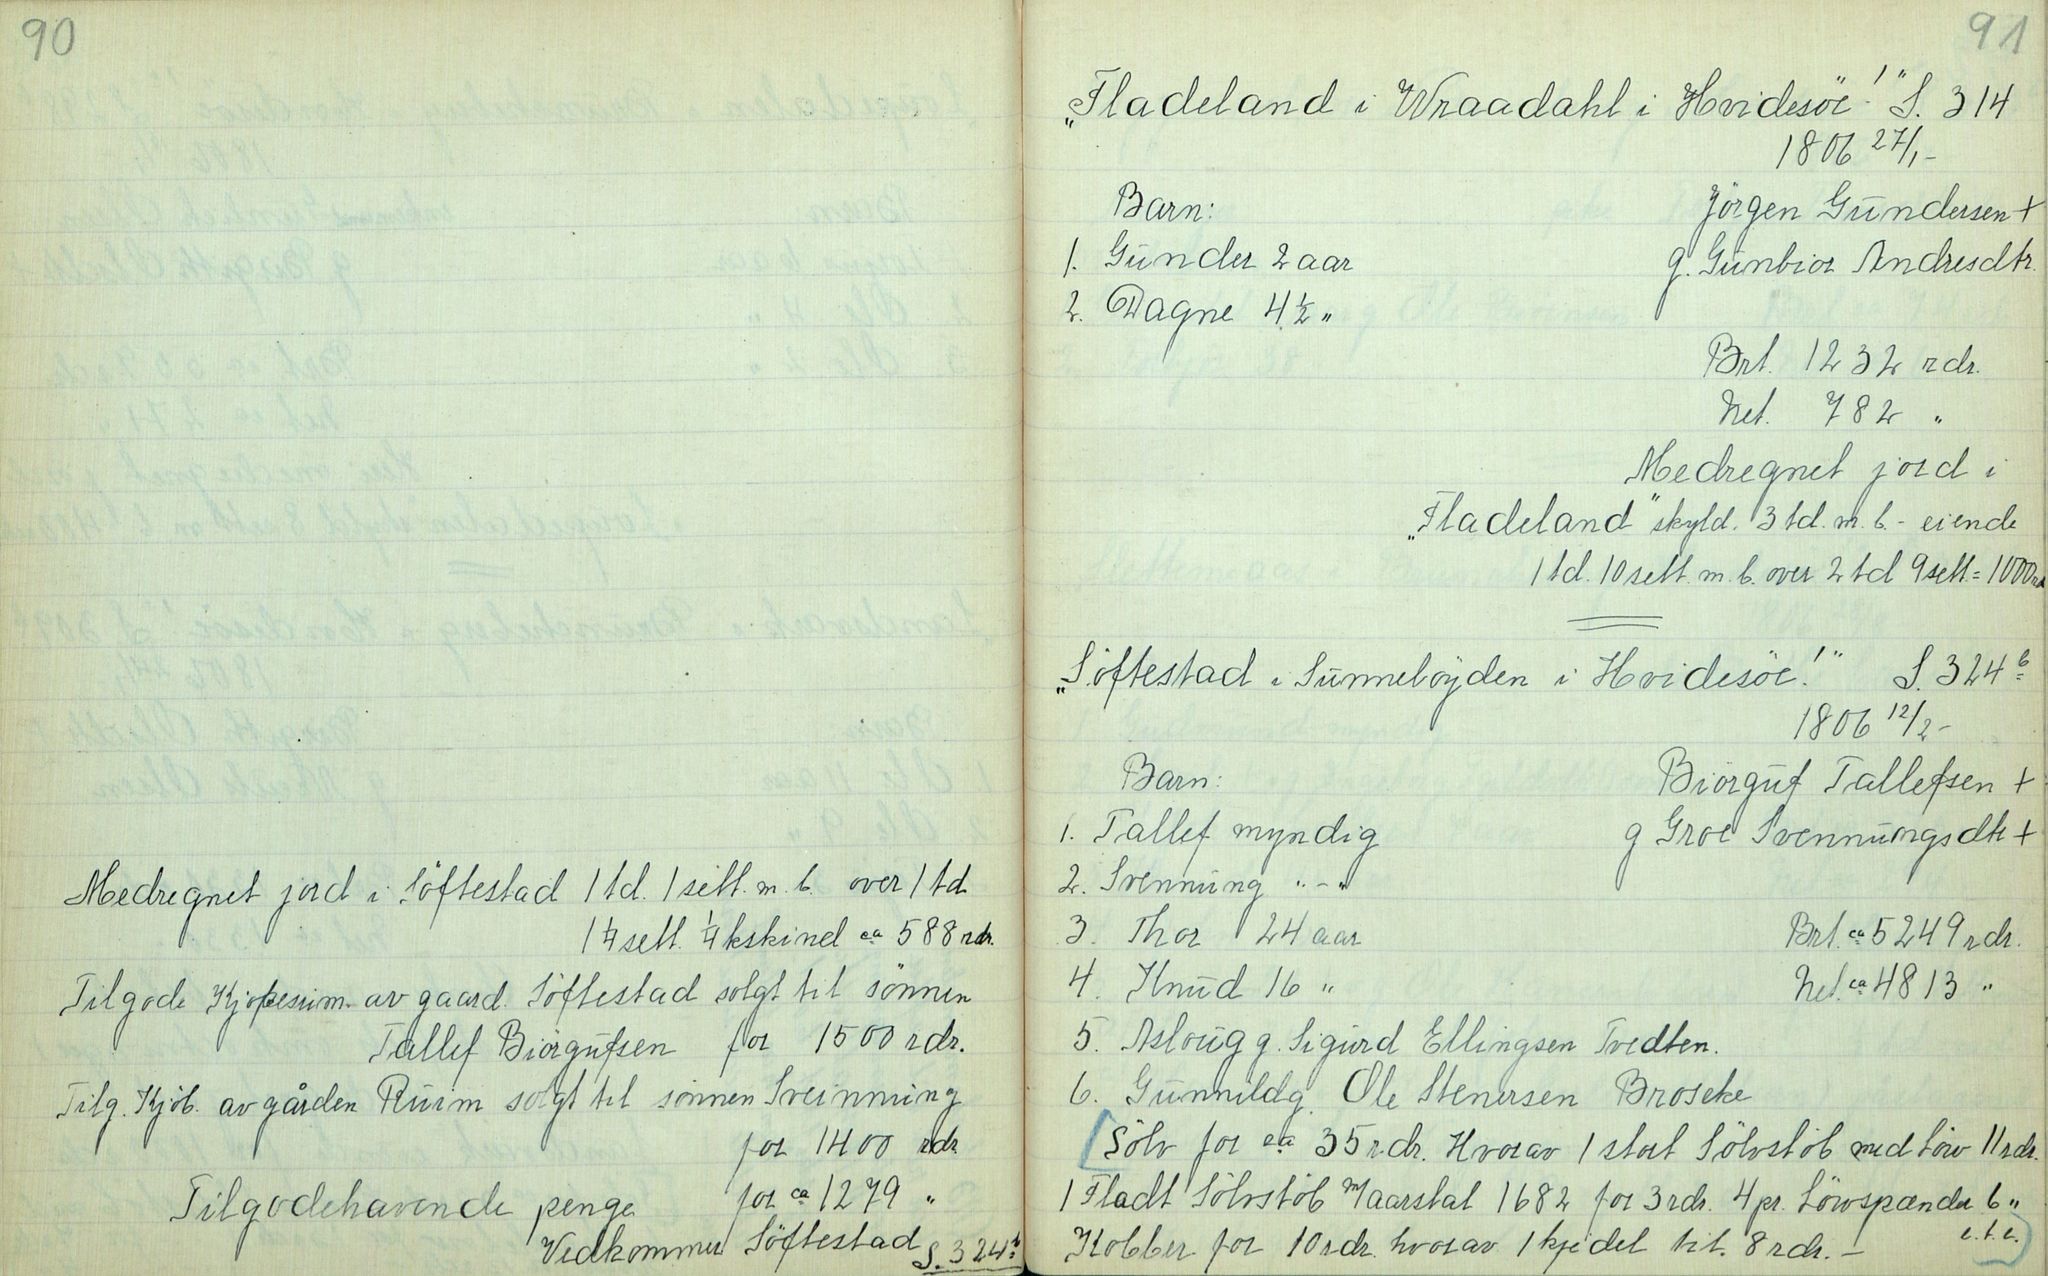 90
Medregnet jord i Söftestad 1 td. 1 sett. m. b. over 1 td
1 1/4 sett. 1/4 kskind ca 588 rdr.
Tilgode Kjöpesum. av gaard. Söftestad solgt til sönnen
Tallef Biörgufsen for 1500 rdr.
Tilg. Kjöb. av gården Ruim solgt til sönnen Sveinning
for 1400 rdr.
Tilgodehavende penge for ca 1279 "
Vedkommer Söftestad S. 324b
91
"Fladeland i Wraadahl i Hvidesöe!" S. 314
1806 27/1-
Barn: Jörgen Gundersen +
1. Gunder 2 aar g. Gunbior Andresdtr.
2. Dagne 4 1/2 "
Brt. 1232 rdr.
Net. 782 "
Medregnet jord i
"Fladeland" skyld. 3 td. m. b. - eiende
1 td. 10 sett. m. b. over 2 td 9 sett = 1000 rd
"Söftestad i Sunneböyden i Hvidesöe!" S. 324b
1806 12/2-
Barn: Biörguf Tallefsen +
1. Tallef myndig g Groe Svennungsdtr +
2. Svennung "-"
3. Thor 24 aar Brt. ca 5249 rdr.
4. Knud 16 " Net. ca 4813 "
5. Asloug g. Sigurd Ellingsen Tvedten.
6. Gunnild g. Ole Stenersen Broseke
[Sölv for ca 35 rdr. Hvorav 1 stort Sölvstöb med Löw 11 rdr.
1 Fladt Sölvstöb m/aarstal 1682 for 3 rdr. 4 pr. Löwspænder 6 "
Kobber for 10 rdr. hvorav 1 kjedel til. 8 rdr. - e.t.c.]